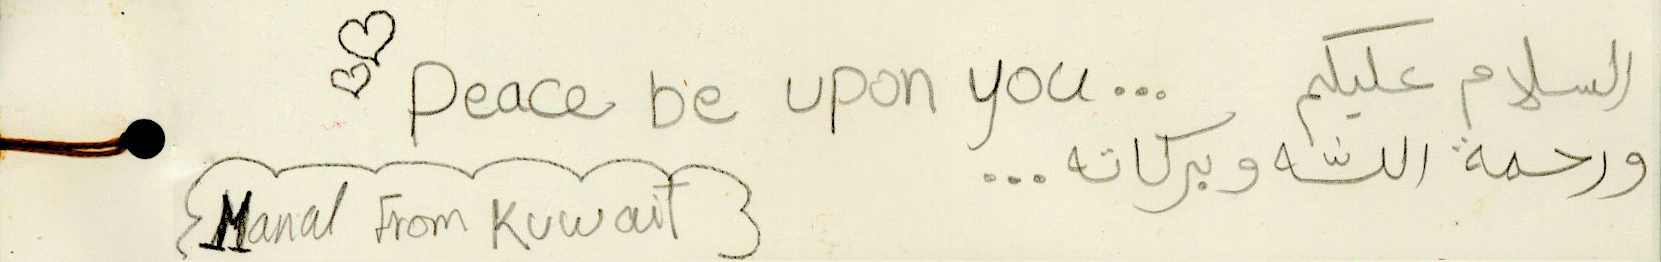 Peace be upon you...
السلام عليكم
ورحمة الله وبركاته...
Manal From Kuwait